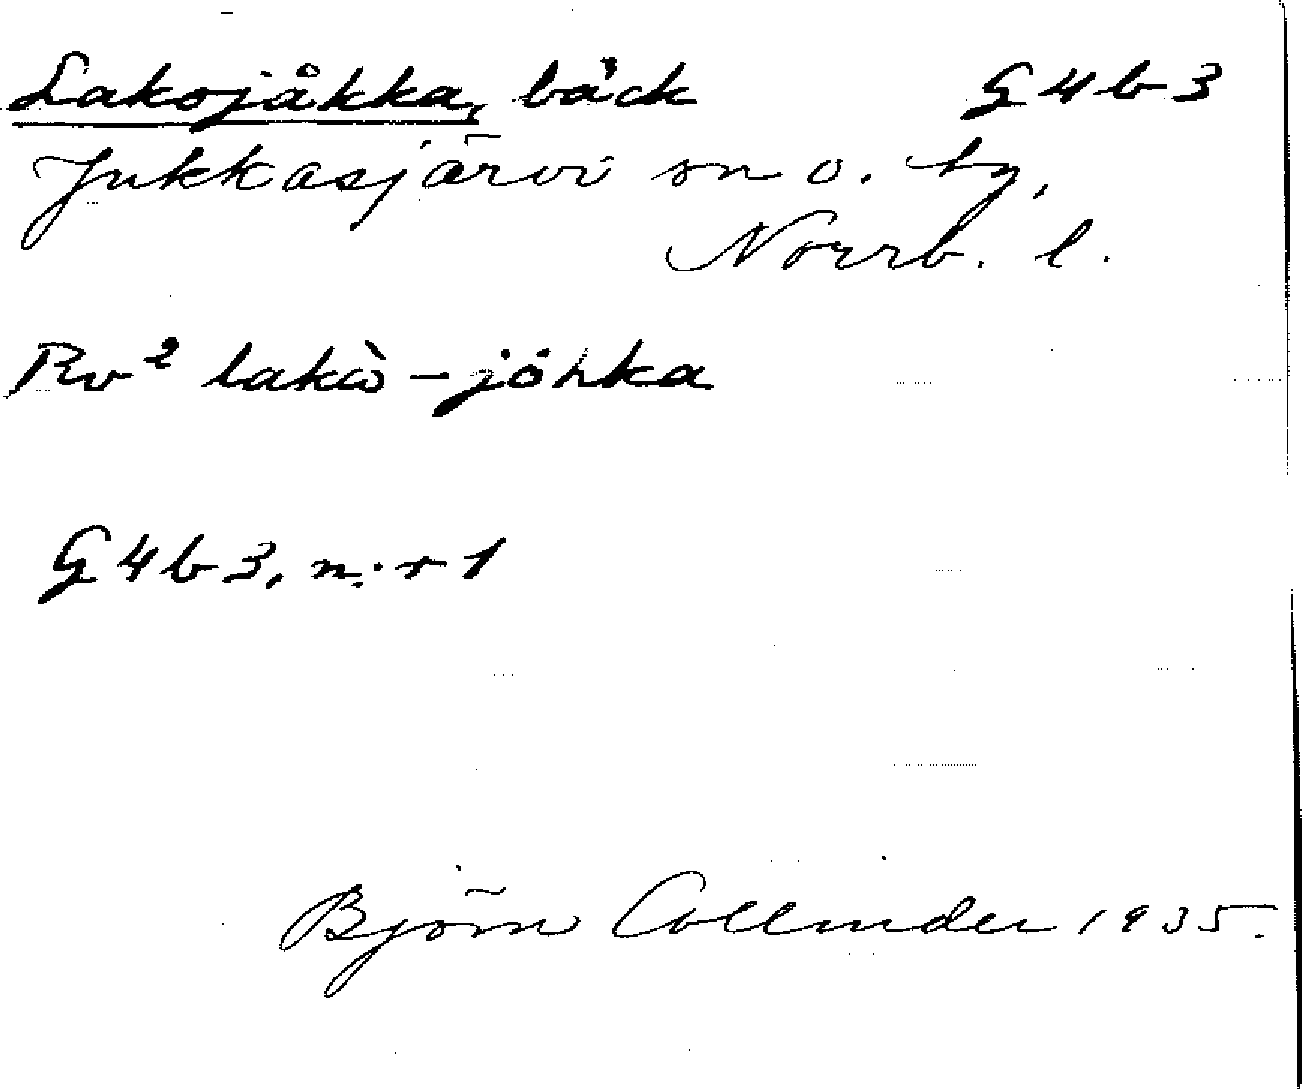 Lakojåkka, bäck G4b3
Jukkasjärvi sn o. tg,
Norrb. l.
Rv² lakò-jöhka
G4b3, n:r 1
Björn Collinder 1935.